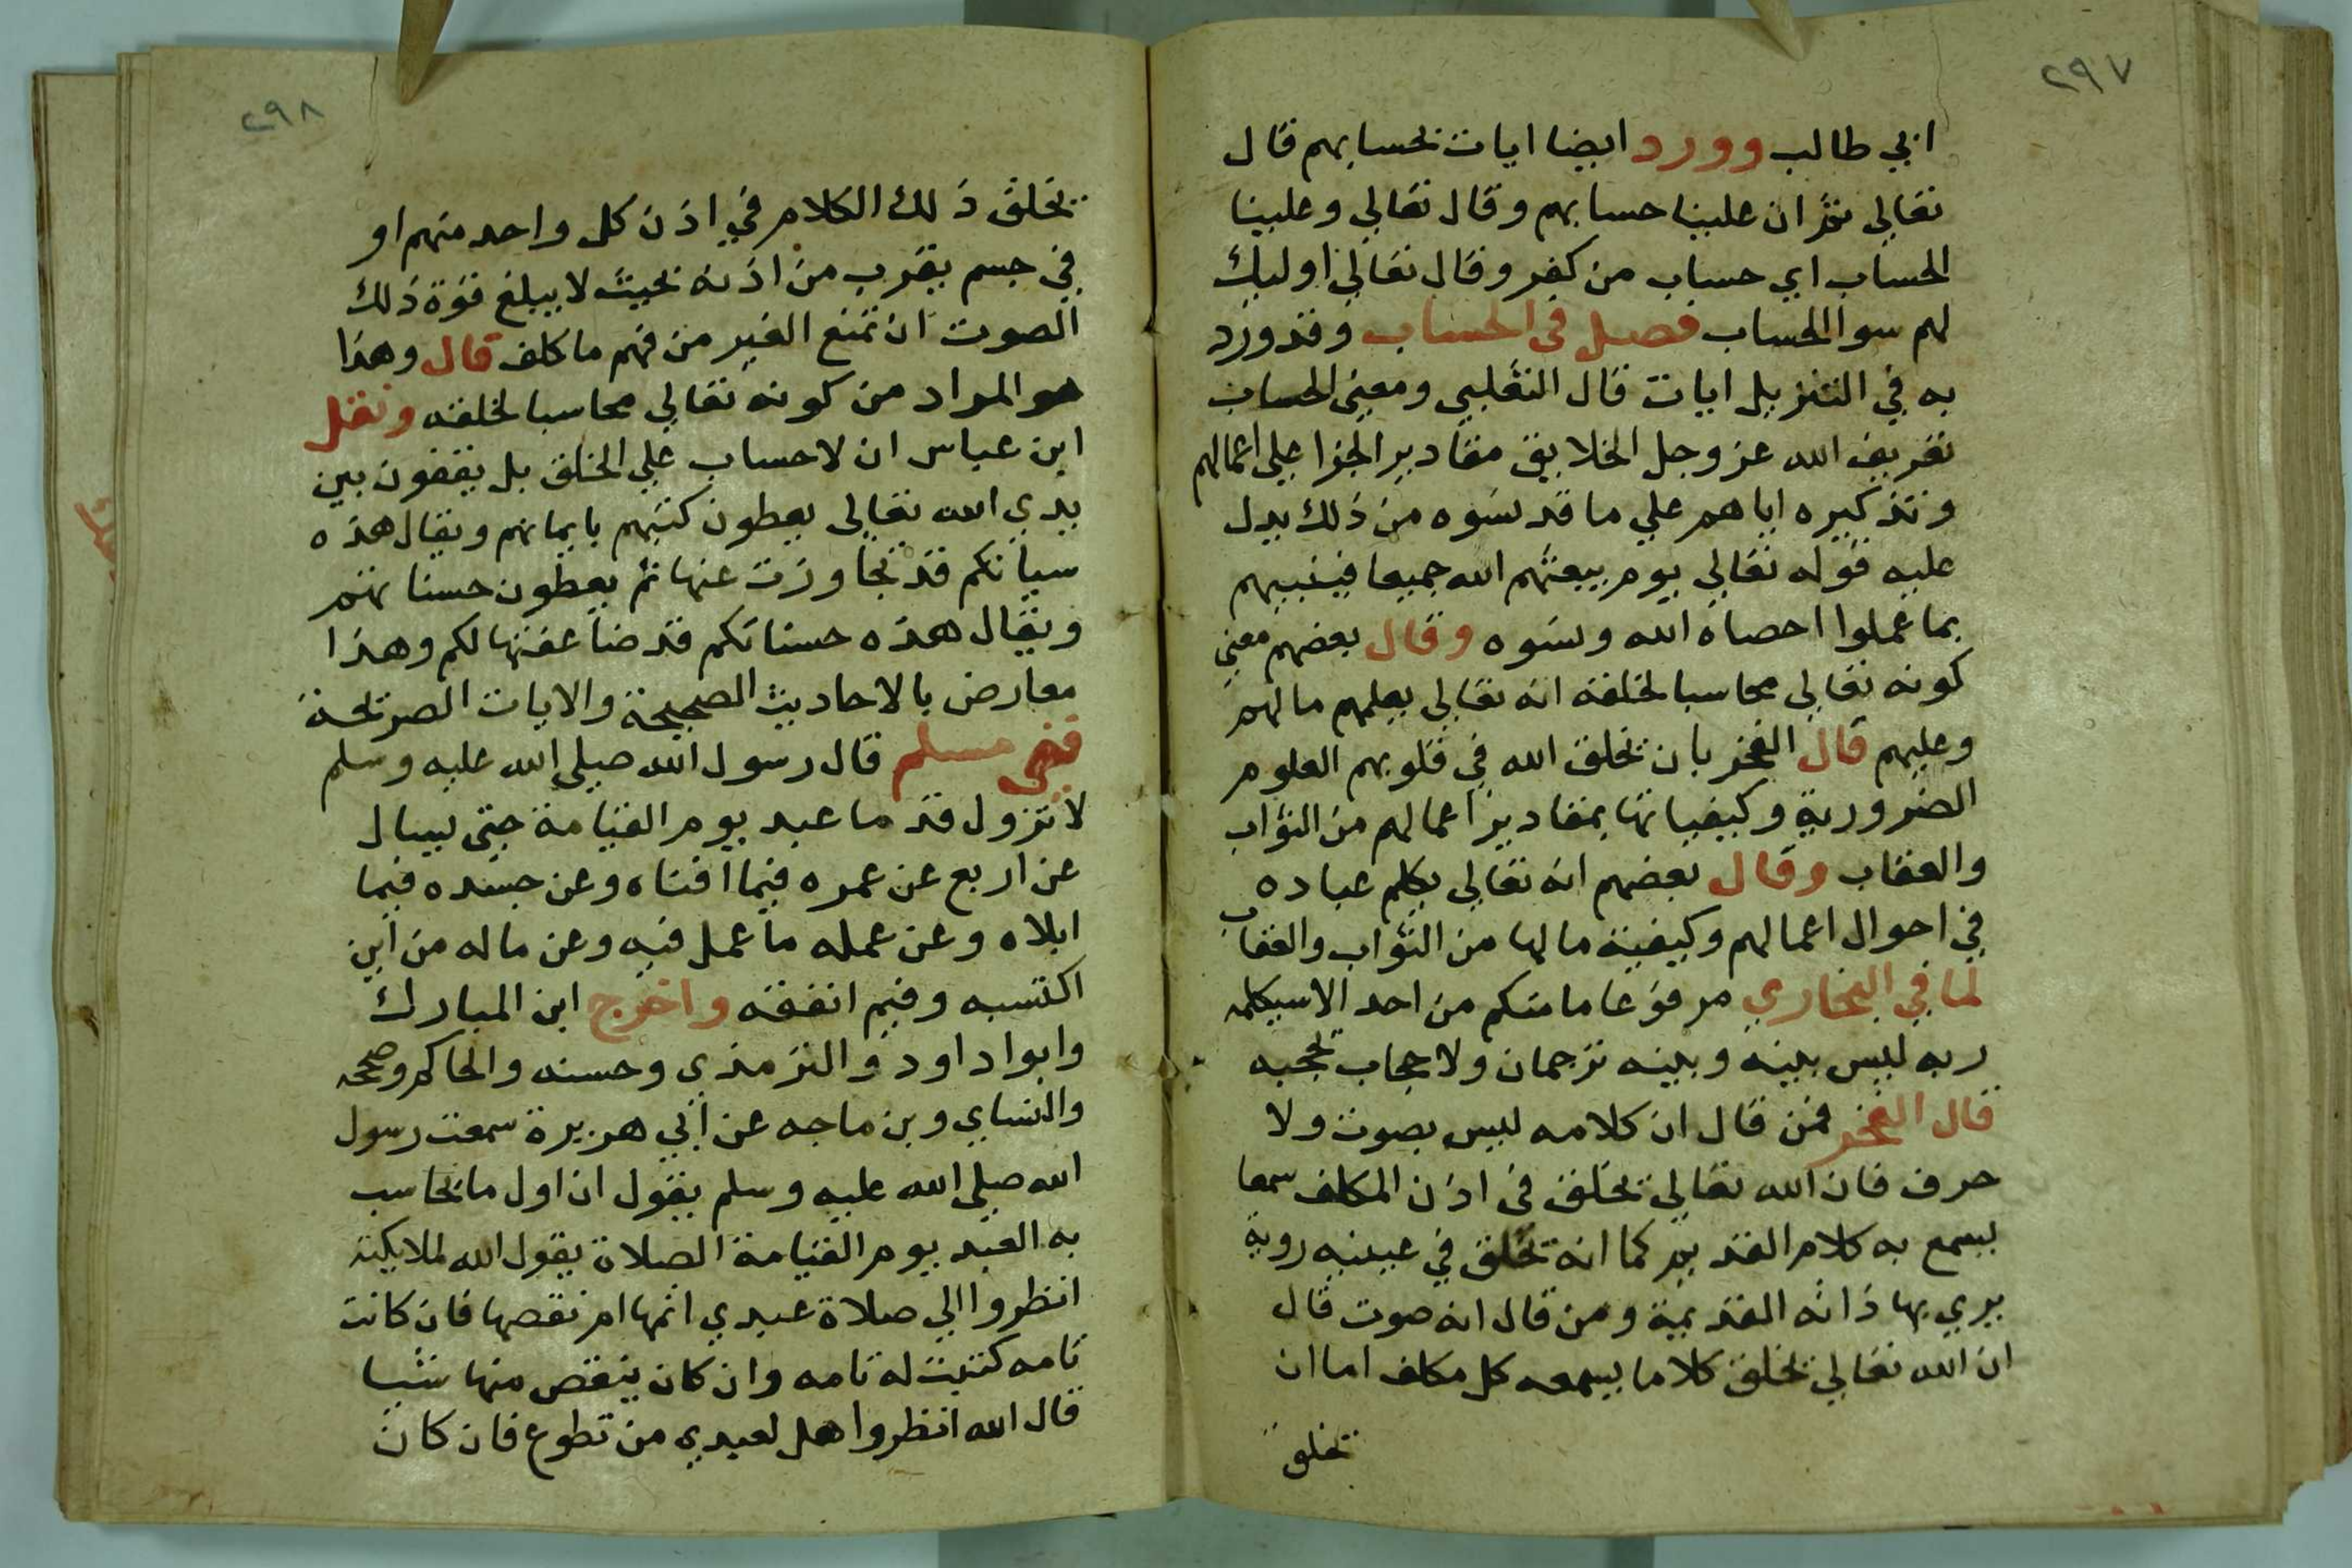 ٢٩٧
ابي طالب وورد ايضا ايات بحسابهم قال
تعالي ثم ان علينا حسابهم وقال تعالي وعلينا
الحساب اي حساب من كفر وقال تعالي اوليك
لهم سوا الحساب فصل في الحساب وقد ورد
به في التنزيل ايات قال الثعلبي ومعني الحساب
تعريف الله عز وجل الخلايق مقادير الجزا علي اعمالهم
وتذكيره اياهم علي ما قد نسوه من ذلك يدل
عليه قوله تعالي يوم يبعثهم الله جميعا فينبيهم
بما عملوا احصاه الله ونسوه وقال بعضهم معني
كونه تعالي محاسبا لخلقه انه تعالي يعلمهم مالهم
وعليهم قال الفخر بان يخلق الله في قلوبهم العلوم
الضرورية وكيفياتها بمقادير اعمالهم من الثواب
والعقاب وقال بعضهم انه تعالي يكلم عباده
في احوال اعمالهم وكيفية مالها من الثواب والعقاب
لما في البخاري مرفوعا ما منكم من احد الا سيكلمه
ربه ليس بينه وبينه ترجمان ولا حجاب يحجبه
قال الفخر فمن قال ان كلامه ليس بصوت ولا
حرف فان الله تعالي يخلق في اذن المكلف سمعا
يسمع به كلام القديم كما انه يخلق في عينيه روية
يري بها ذاته القديمة ومن قال انه صوت قال
ان الله تعالي يخلق كلاما يسمعه كل مكلف اما ان
يخلق
٢٩٨
يخلق ذلك الكلام في اذن كل واحد منهم او
في جسم يقرب من اذنه بحيث لا يبلغ قوة ذلك
الصوت ان تمنع الغير من فهم ما كلف قال وهذا
هو المراد من كونه تعالي محاسبا لخلقه ونقل
ابن عباس ان لا حساب علي الخلق بل يقفون بين
يدي الله تعالي يعطون كتبهم بايمانهم ويقال هذه
سياتكم قد تجاوزت عنها ثم يعطون حسناتهم
ويقال هذه حسناتكم قد ضاعفتها لكم وهذا
معارض بالاحاديث الصحيحة والايات الصريحة
ففي مسلم قال رسول الله صلي الله عليه وسلم
لا تزول قدما عبد يوم القيامة حتي يسال
عن اربع عن عمره فيما افناه وعن جسده فيما
ابلاه وعن عمله ما عمل فيه وعن ماله من اين
اكتسبه وفيم انفقه واخرج ابن المبارك
وابوا داود والترمذي وحسنه والحاكم وصححه
والنساي وبن ماجه عن ابي هريرة سمعت رسول
الله صلي الله عليه وسلم يقول ان اول ما يحاسب
به العبد يوم القيامة الصلاة يقول الله لملايكته
انظروا الي صلاة عبدي اتمها ام نقصها فان كانت
تامه كتبت له تامه وان كان ينقص منها شيا
قال الله انظروا هل لعبدي من تطوع فان كان